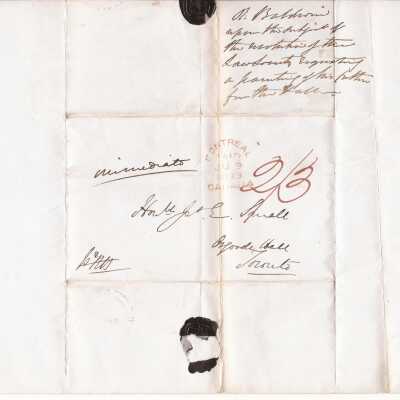 R. Baldwin
upon the subject of
the resolution of the
Law Society requesting
a painting of his father
for the Hall
MONTREAL
JU 9
CANADA
2/3
immediate
Honble Jas. E. Small
Osgoode Hall
Toronto